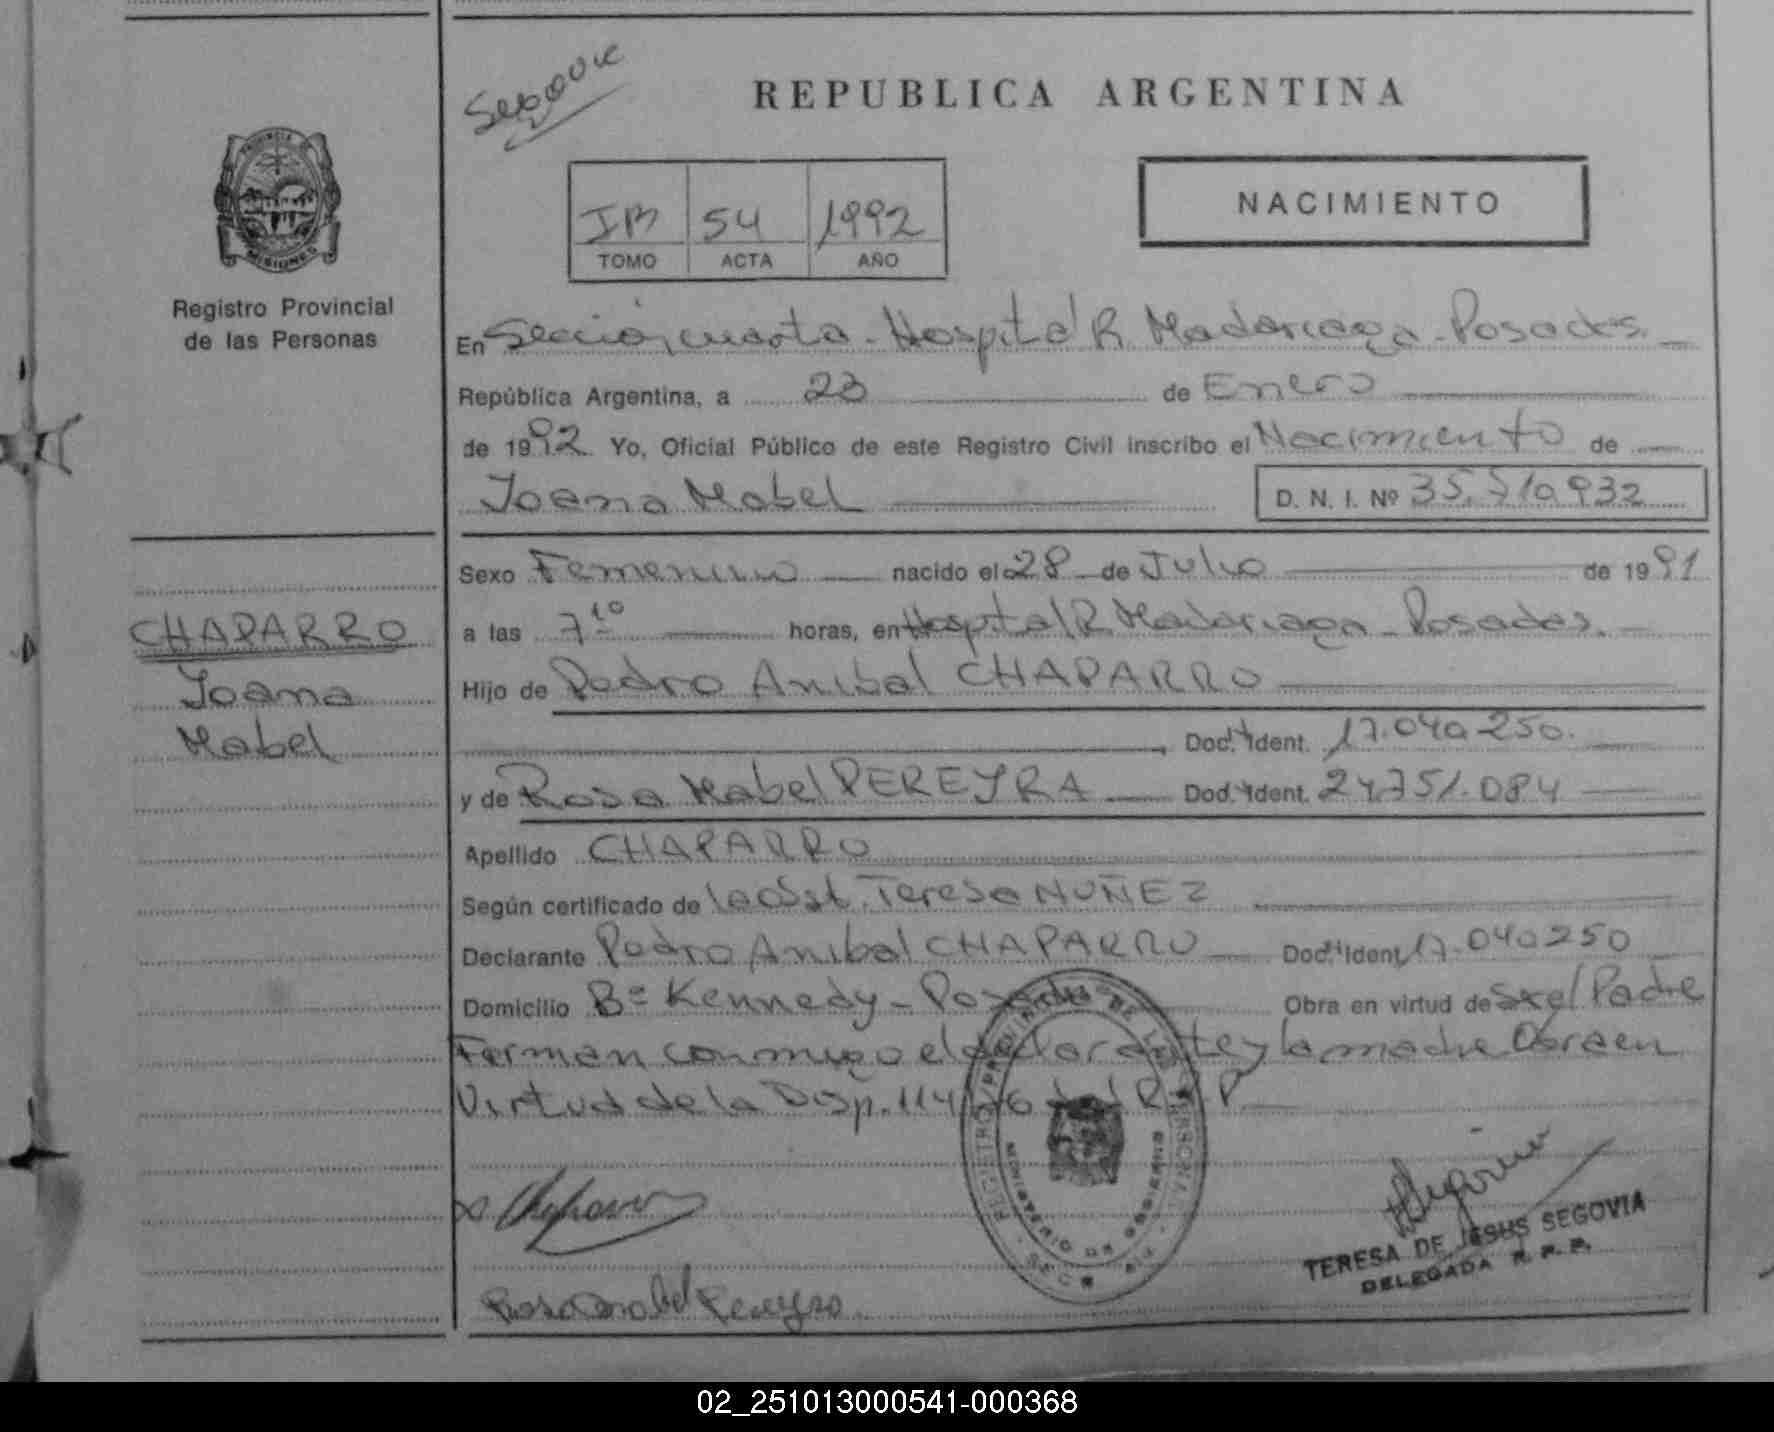 REPUBLICA ARGENTINA
PROVINCIA
MISIONES
Registro Provincial
de las Personas
IB 54 1992
TOMO ACTA AÑO
NACIMIENTO
En Sección cuarta - Hospital R. Madariaga - Posadas.
República Argentina, a 23 de Enero
de 1992. Yo, Oficial Público de este Registro Civil inscribo el Nacimiento de
Joana Mabel D. N. I. Nº 35.710.932
Sexo Femenino nacido el 28 de Julio de 1991
CHAPARRO
Joana
Mabel
a las 7 10 horas, en Hospital R. Madariaga - Posadas.
Hijo de Pedro Anibal CHAPARRO
Doc. Ident. 17.040.250.
y de Rosa Mabel PEREYRA Doc. Ident. 24.751.084
Apellido CHAPARRO
Según certificado de la Obst. Teresa NUÑEZ
Declarante Pedro Anibal CHAPARRO Doc. Ident. 17.040250
Domicilio Bº Kennedy - Posadas Obra en virtud de Ser el Padre
Firman conmigo el declarante y la madre Obra en
Virtud de la Disp. 114 del R. P.
REGISTRO PROVINCIAL DE LAS PERSONAS
MINISTERIO DE GOBIERNO
TERESA DE JESUS SEGOVIA
DELEGADA R. P. P.
Rosa Mabel Pereyra
02_251013000541-000368